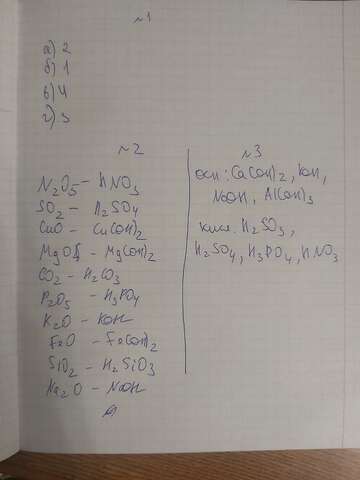 №1
а) 2
б) 1
в) 4
г) 3
№2
N₂O₅ – HNO₃
SO₂ – H₂SO₄
CuO – Cu(OH)₂
MgO – Mg(OH)₂
CO₂ – H₂CO₃
P₂O₅ – H₃PO₄
K₂O – KOH
FeO – Fe(OH)₂
SiO₂ – H₂SiO₃
Na₂O – NaOH
№3
осн: Ca(OH)₂, KOH,
NaOH, Al(OH)₃
кисл. H₂SO₃,
H₂SO₄, H₃PO₄, HNO₃